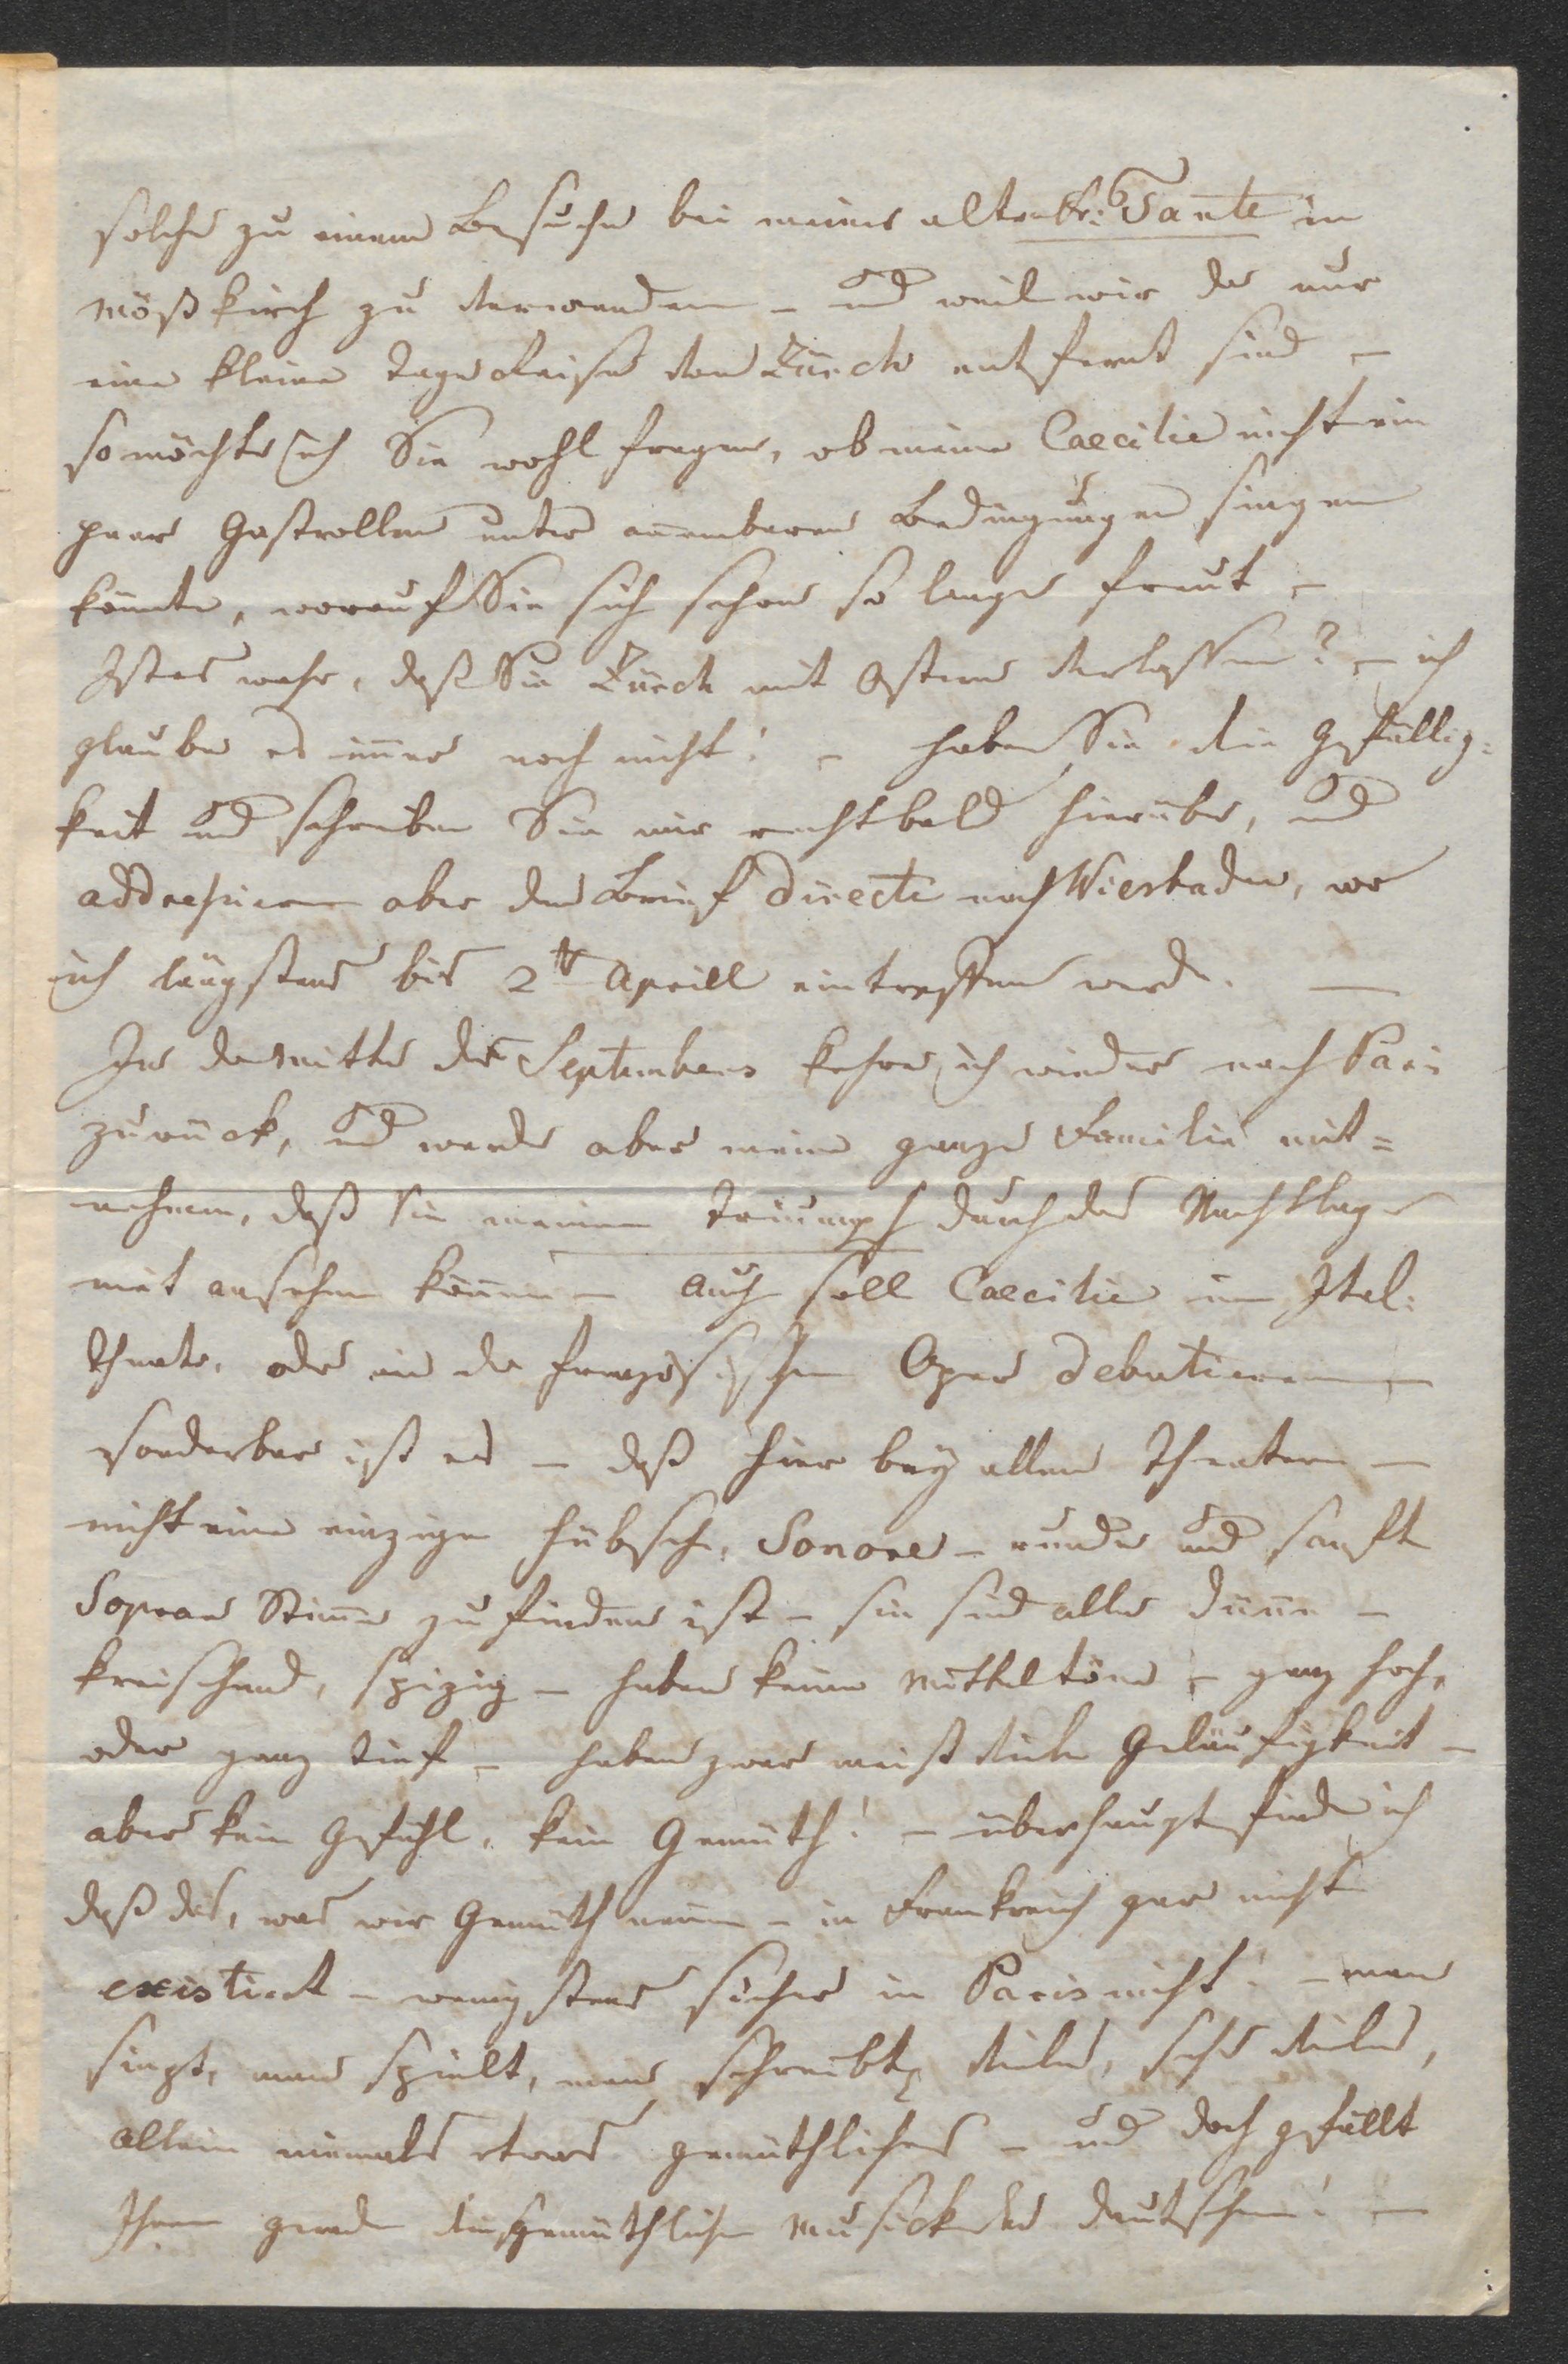 solche zu einem Besuche bei meiner alten Fr: Tante in
Mößkirch zu verwenden – und weil wir da nur
eine kleine Tage Reise von Zürch entfernt sind –
so möchte ich Sie wohl fragen, ob meine Caecilie nicht ein
paar Gastrollen unter annembaren Bedingungen singen
könnte, worauf Sie sich schon so lange freut –
Ist es wahr, daß Sie Zürch mit Ostern verlassen? – ich
glaube es immer noch nicht! – haben Sie die Gefällig:
keit und schreiben Sie mir recht bald hierüber, und
addressieren aber den Brief directe nach Wiesbaden, wo
ich längstens bis 2t Aprill eintreffen werde. —
In der Mitte des Septembers kehre ich wieder nach Paris
zurück, und werde aber meine ganze Familie mit=
nehmen, daß sie meinen Triumpf durch das Nachtlager
mit ansehen können – auch soll Caecilie im Ital:
Theater, oder in der französischen Oper debutieren –
sonderbar ist es – daß hier bey allen Theatern –
nicht eine einzige hübsche, Sonore – runde und sanfte
Sopran Stimme zu finden ist – sie sind alle dünn –
kreischend, spizig – haben keine Mitteltöne – ganz hoch,
oder ganz tief – haben zwar meist viele Geläufigkeit –
aber kein Gefühl, kein Gemüth! – überhaupt finde ich
daß das, was wir Gemüth nennen – in Frankreich gar nicht
existirt – wenigstens sicher in Paris nicht! – man
singt, man spielt, man schreibt, vieles, sehr vieles,
allein niemals etwas gemüthliches – und doch gefällt
Ihnen gerade die gemüthliche Musick der Deutschen! –